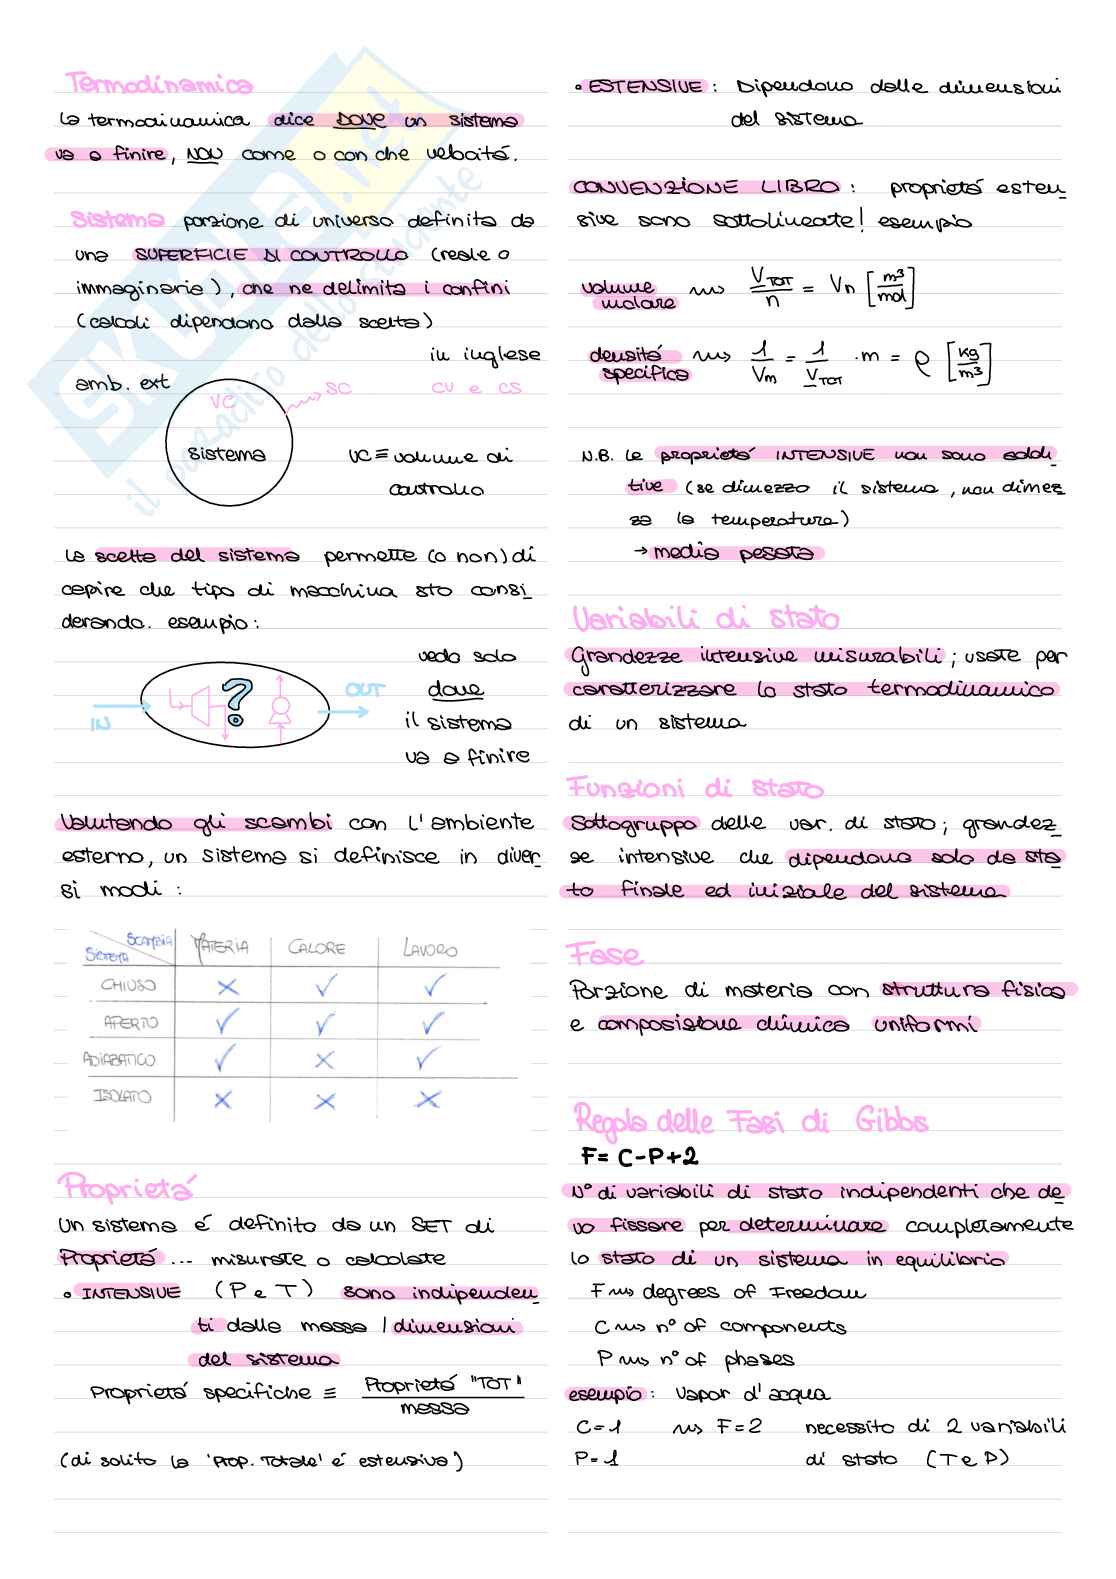 Termodinamica
La termodinamica dice DOVE un sistema
va a finire, NON come o con che velocitá.
Sistema porzione di universo definita da
una SUPERFICIE DI CONTROLLO (reale o
immaginaria), che ne delimita i confini
(calcoli dipendono dalla scelta)
in inglese
amb. ext
VC
SC
CV e CS
sistema
VC ≡ volume di
controllo
La scelta del sistema permette (o non) di
capire che tipo di macchina sto consi_
derando. esempio:
vedo solo
?
OUT
dove
IN
il sistema
va a finire
Valutando gli scambi con l'ambiente
esterno, un sistema si definisce in diver_
si modi:
SCAMBIA
SISTEMA
MATERIA CALORE LAVORO
CHIUSO × ✓ ✓
APERTO ✓ ✓ ✓
ADIABATICO ✓ × ✓
ISOLATO × × ×
Proprietá
Un sistema é definito da un SET di
Proprietá ... misurate o calcolate
• INTENSIVE (P e T) sono indipenden_
ti dalla massa / dimensioni
del sistema
Proprietá specifiche ≡ Proprietá "TOT" / massa
(di solito la 'Prop. Totale' é estensiva)
• ESTENSIVE: Dipendono dalle dimensioni
del sistema
CONVENZIONE LIBRO: proprietá esten_
sive sono sottolineate! esempio
volume molare ⇝ V_TOT / n = Vn [m³/mol]
densitá specifica ⇝ 1/Vm = 1/V_TOT · m = ρ [kg/m³]
N.B. Le proprietá INTENSIVE non sono addi_
tive (se dimezzo il sistema, non dimez_
za la temperatura)
→ media pesata
Variabili di stato
Grandezze intensive misurabili; usate per
caratterizzare lo stato termodinamico
di un sistema
Funzioni di stato
Sottogruppo delle var. di stato; grandez_
ze intensive che dipendono solo da sta_
to finale ed iniziale del sistema
Fase
Porzione di materia con struttura fisica
e composizione chimica uniformi
Regola delle Fasi di Gibbs
F= C-P+2
N° di variabili di stato indipendenti che de_
vo fissare per determinare completamente
lo stato di un sistema in equilibrio
F ⇝ degrees of Freedom
C ⇝ n° of components
P ⇝ n° of phases
esempio: vapor d'acqua
C=1 ⇝ F=2 necessito di 2 variabili
P=1 di stato (T e P)
SKUOLA.net
il paradiso dello studente